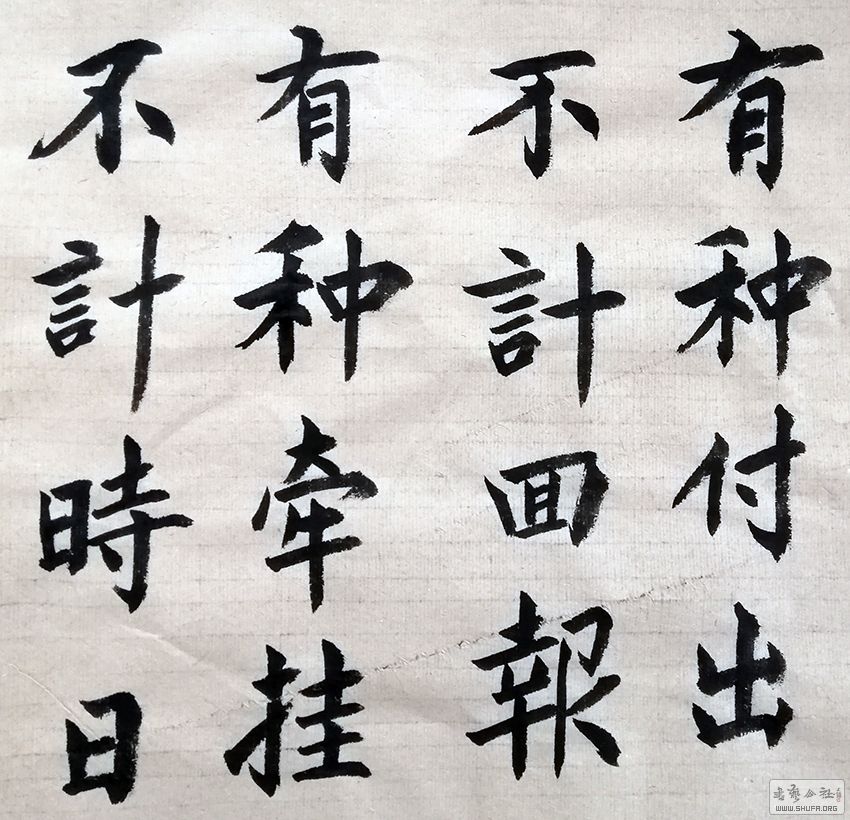 有种付出
不計回報
有种牵挂
不計時日
WWW.SHUFA.ORG